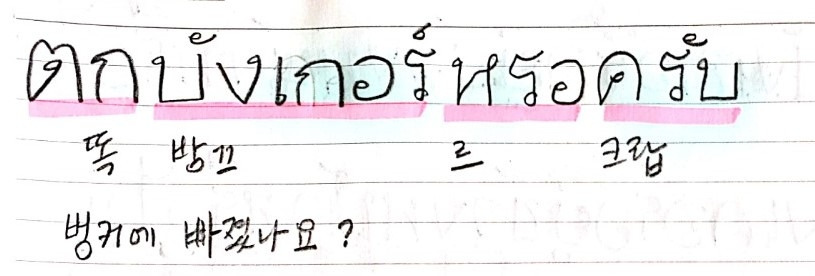 ตกบังเกอร์หรอครับ
똑 방끄 르 크랍
벙커에 빠졌나요?